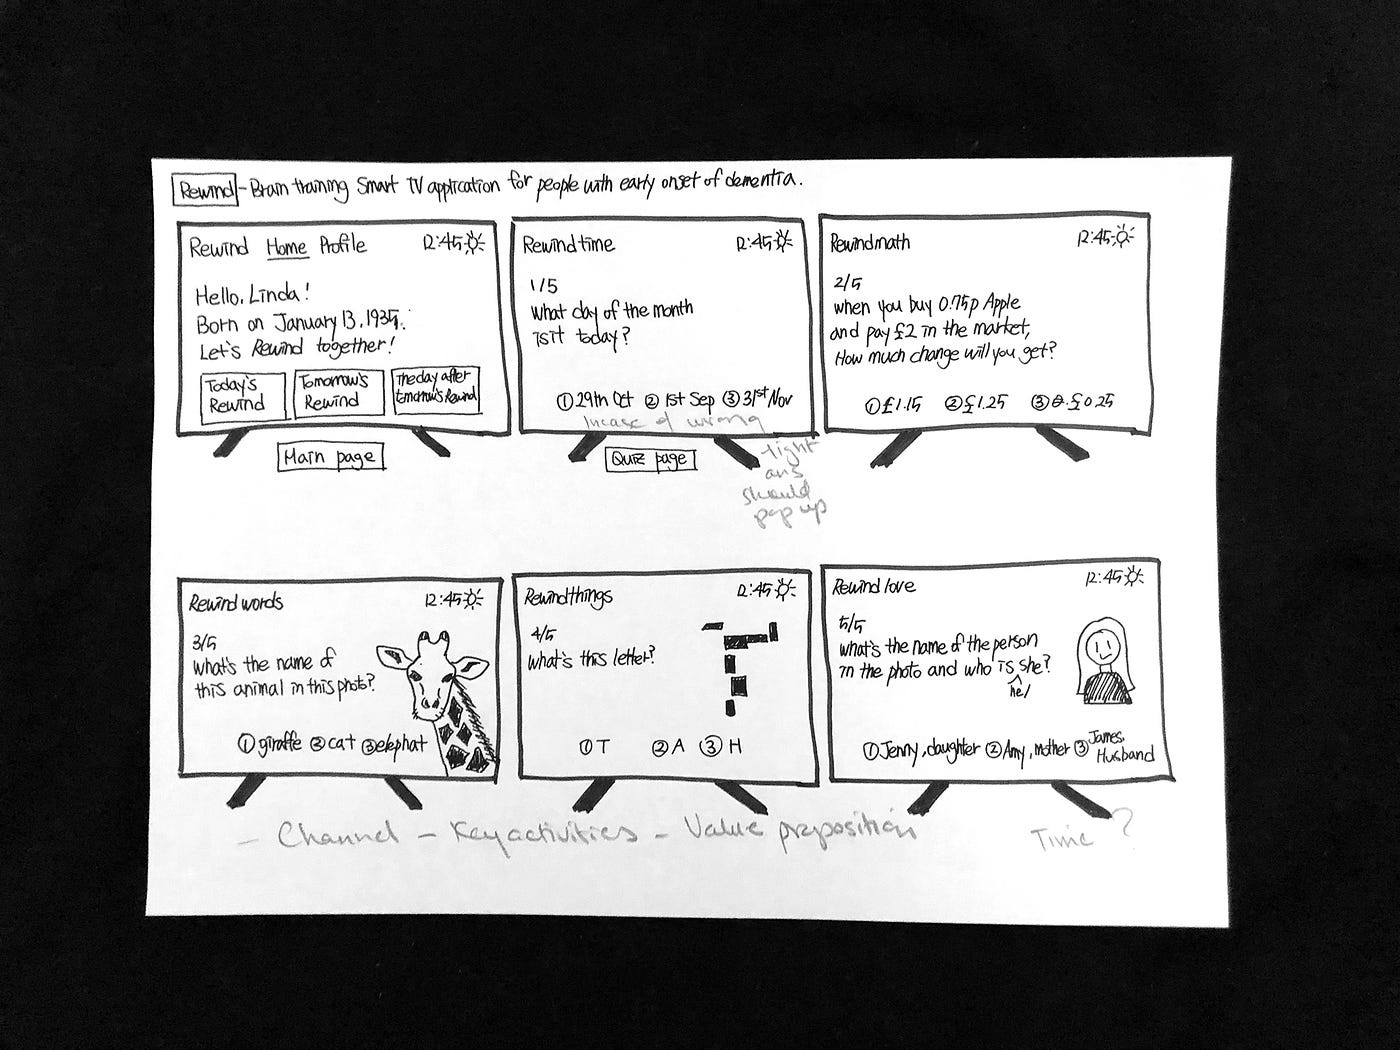 Rewind - Brain training Smart TV application for people with early onset of dementia.
Rewind Home Profile 12:45
Hello, Linda!
Born on January 13, 1935.
Let's Rewind together!
Today's
Rewind
Tomorrow's
Rewind
The day after
tomorrow's Rewind
Main page
Rewind time 12:45
1/5
What day of the month
is it today?
① 29th Oct ② 1st Sep ③ 31st Nov
Incase of wrong
right
ans
should
pop up
Quiz page
Rewind math 12:45
2/5
when you buy 0.75p Apple
and pay £2 in the market,
How much change will you get?
① £1.15 ② £1.25 ③ £0.25
Rewind words 12:45
3/5
What's the name of
this animal in this photo?
① giraffe ② cat ③ elephat
Rewind things 12:45
4/5
What's this letter?
① T ② A ③ H
Rewind love 12:45
5/5
what's the name of the person
in the photo and who is she?
he/
① Jenny, daughter ② Amy, mother ③ James,
Husband
- Channel - Key activities - Value preposition
Time?